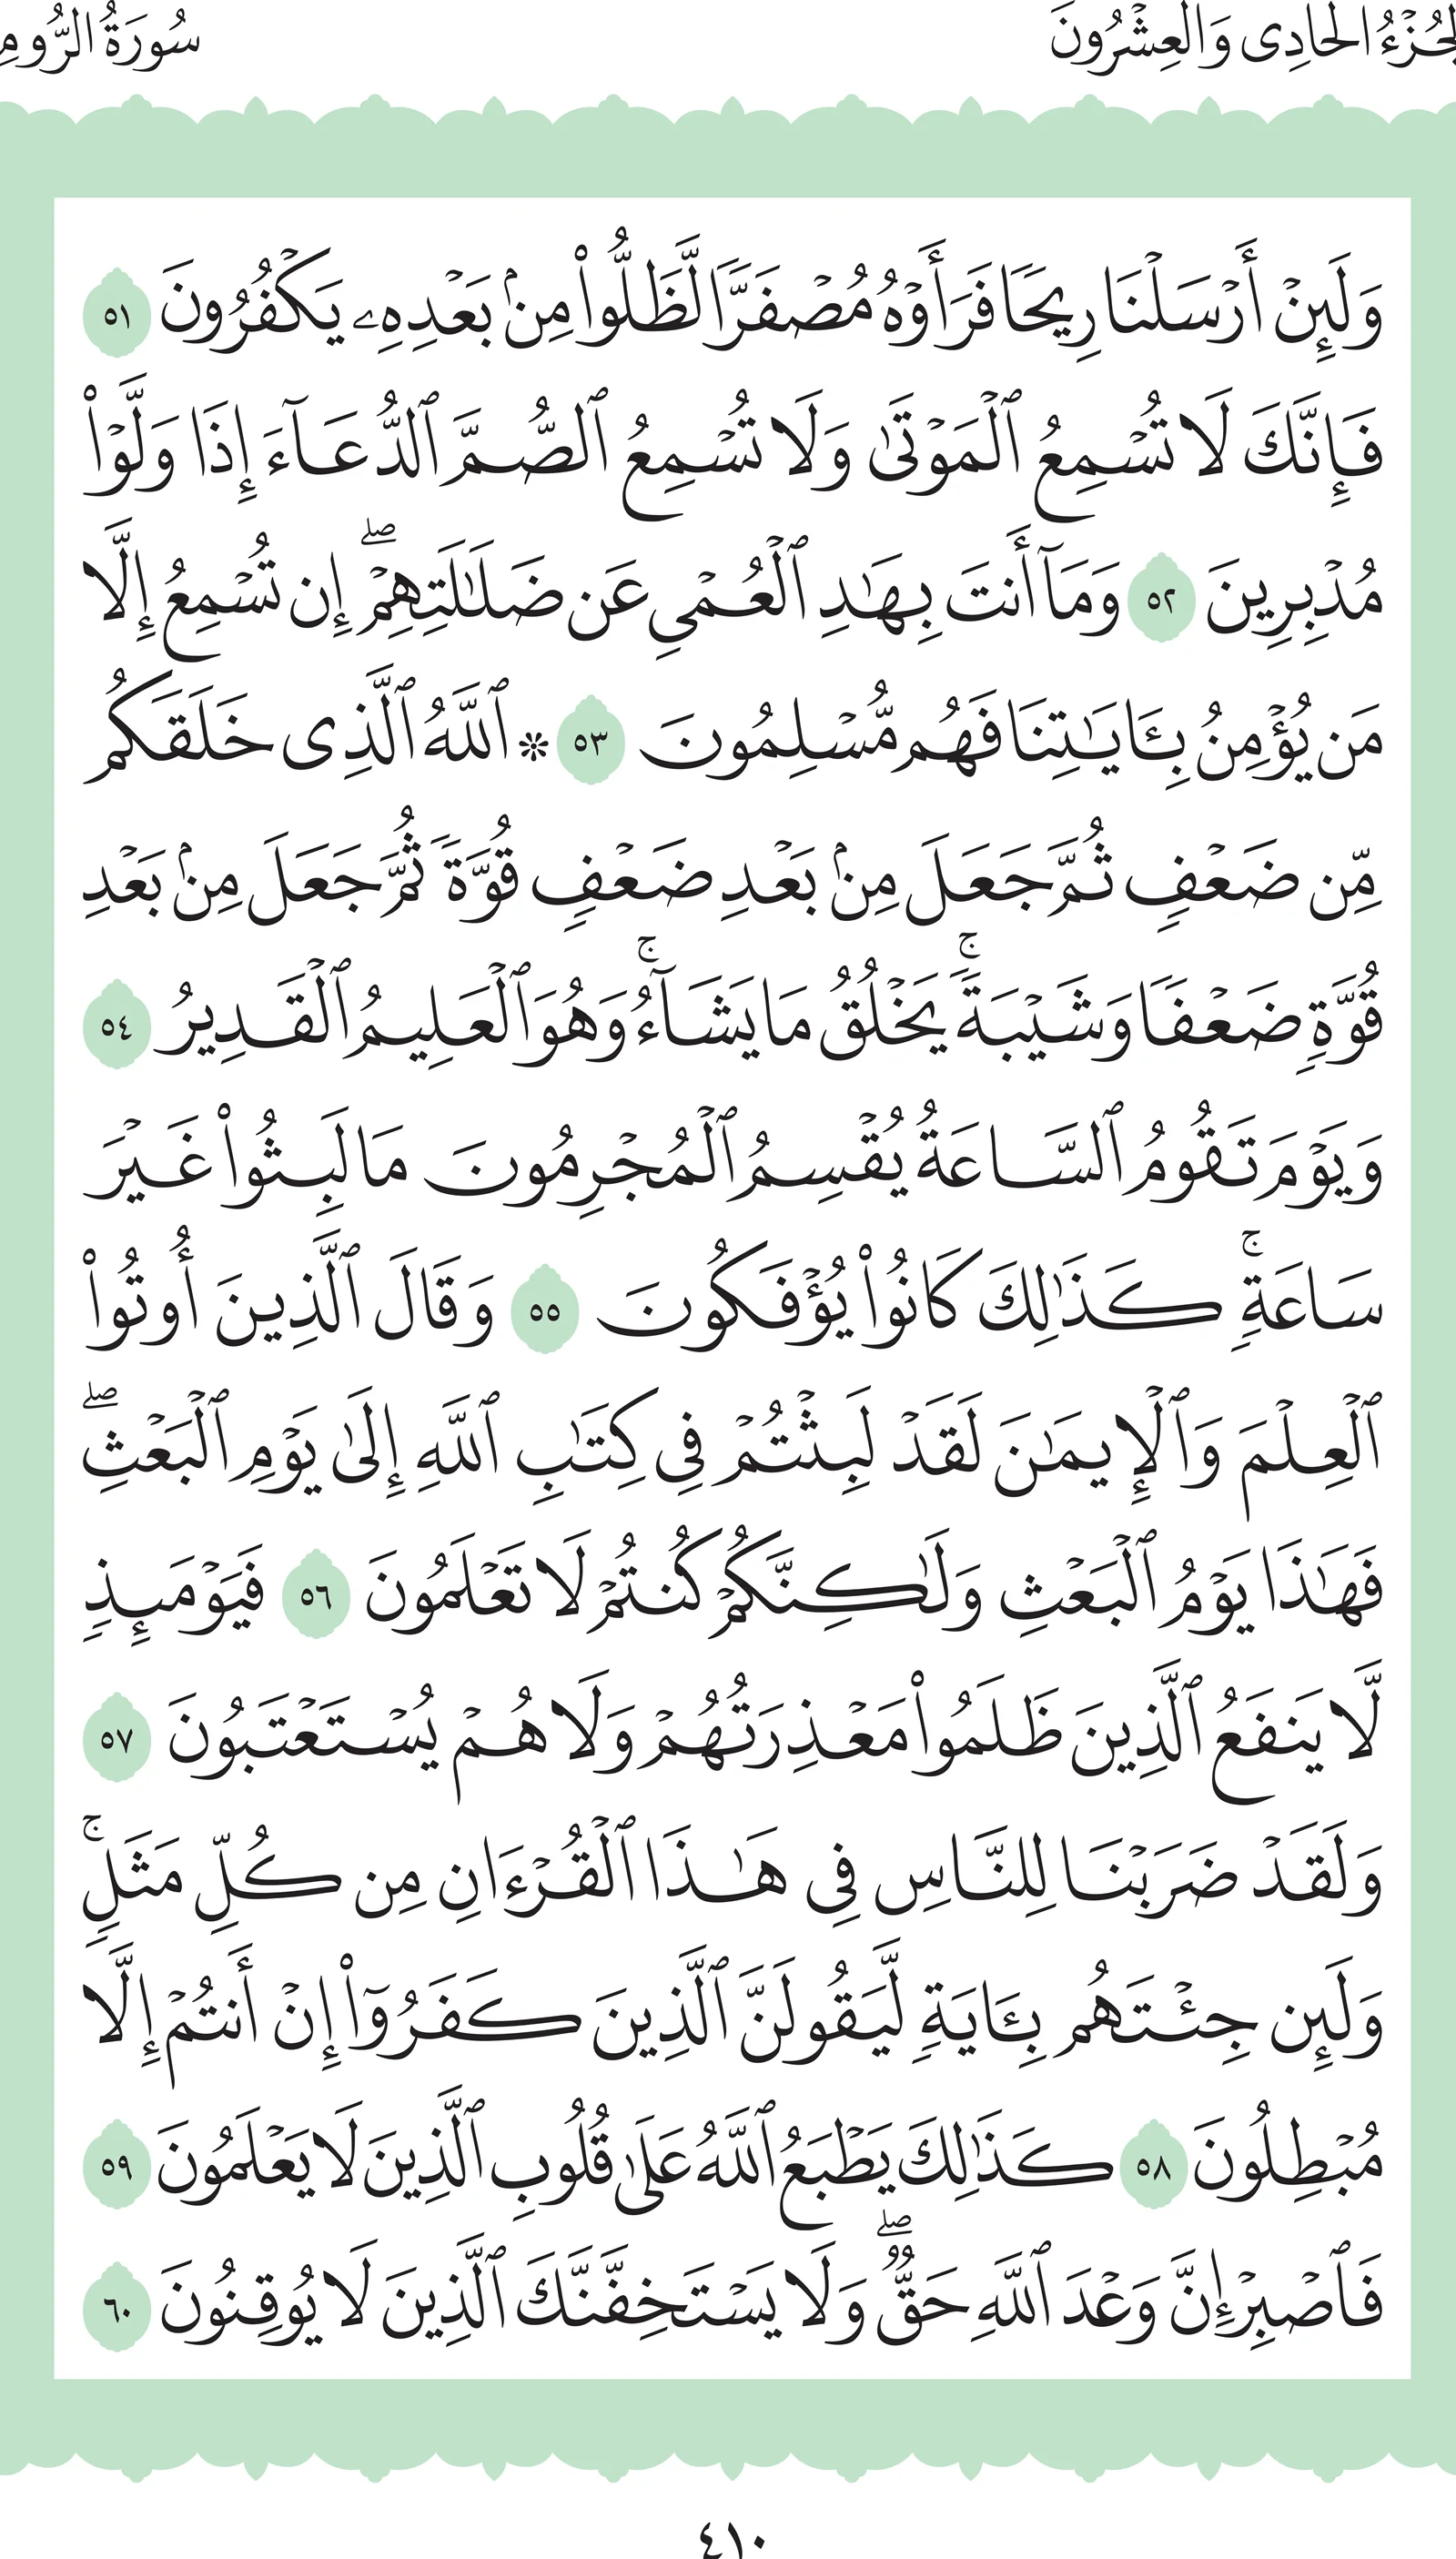 الجُزْءُ الحَادِى وَالعِشْرُونَ سُورَةُ الرُّومِ
وَلَئِنْ أَرْسَلْنَا رِيحًا فَرَأَوْهُ مُصْفَرًّا لَّظَلُّوا۟ مِنۢ بَعْدِهِۦ يَكْفُرُونَ ٥١
فَإِنَّكَ لَا تُسْمِعُ ٱلْمَوْتَىٰ وَلَا تُسْمِعُ ٱلصُّمَّ ٱلدُّعَآءَ إِذَا وَلَّوْا۟
مُدْبِرِينَ ٥٢ وَمَآ أَنتَ بِهَٰدِ ٱلْعُمْىِ عَن ضَلَٰلَتِهِمْ ۖ إِن تُسْمِعُ إِلَّا
مَن يُؤْمِنُ بِـَٔايَٰتِنَا فَهُم مُّسْلِمُونَ ٥٣ ۞ ٱللَّهُ ٱلَّذِى خَلَقَكُم
مِّن ضَعْفٍ ثُمَّ جَعَلَ مِنۢ بَعْدِ ضَعْفٍ قُوَّةً ثُمَّ جَعَلَ مِنۢ بَعْدِ
قُوَّةٍ ضَعْفًا وَشَيْبَةً ۚ يَخْلُقُ مَا يَشَآءُ ۚ وَهُوَ ٱلْعَلِيمُ ٱلْقَدِيرُ ٥٤
وَيَوْمَ تَقُومُ ٱلسَّاعَةُ يُقْسِمُ ٱلْمُجْرِمُونَ مَا لَبِثُوا۟ غَيْرَ
سَاعَةٍ ۚ كَذَٰلِكَ كَانُوا۟ يُؤْفَكُونَ ٥٥ وَقَالَ ٱلَّذِينَ أُوتُوا۟
ٱلْعِلْمَ وَٱلْإِيمَٰنَ لَقَدْ لَبِثْتُمْ فِى كِتَٰبِ ٱللَّهِ إِلَىٰ يَوْمِ ٱلْبَعْثِ ۖ
فَهَٰذَا يَوْمُ ٱلْبَعْثِ وَلَٰكِنَّكُمْ كُنتُمْ لَا تَعْلَمُونَ ٥٦ فَيَوْمَئِذٍ
لَّا يَنفَعُ ٱلَّذِينَ ظَلَمُوا۟ مَعْذِرَتُهُمْ وَلَا هُمْ يُسْتَعْتَبُونَ ٥٧
وَلَقَدْ ضَرَبْنَا لِلنَّاسِ فِى هَٰذَا ٱلْقُرْءَانِ مِن كُلِّ مَثَلٍ ۚ
وَلَئِن جِئْتَهُم بِـَٔايَةٍ لَّيَقُولَنَّ ٱلَّذِينَ كَفَرُوٓا۟ إِنْ أَنتُمْ إِلَّا
مُبْطِلُونَ ٥٨ كَذَٰلِكَ يَطْبَعُ ٱللَّهُ عَلَىٰ قُلُوبِ ٱلَّذِينَ لَا يَعْلَمُونَ ٥٩
فَٱصْبِرْ إِنَّ وَعْدَ ٱللَّهِ حَقٌّ ۖ وَلَا يَسْتَخِفَّنَّكَ ٱلَّذِينَ لَا يُوقِنُونَ ٦٠
٤١٠